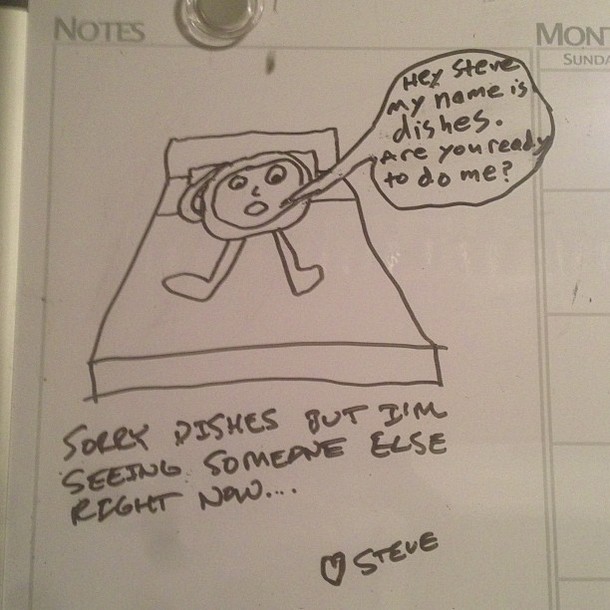 NOTES
MON
SUNDA
Hey Steve
my name is
dishes.
Are you ready
to do me?
SORRY DISHES BUT I'M
SEEING SOMEONE ELSE
RIGHT NOW....
♡ STEVE